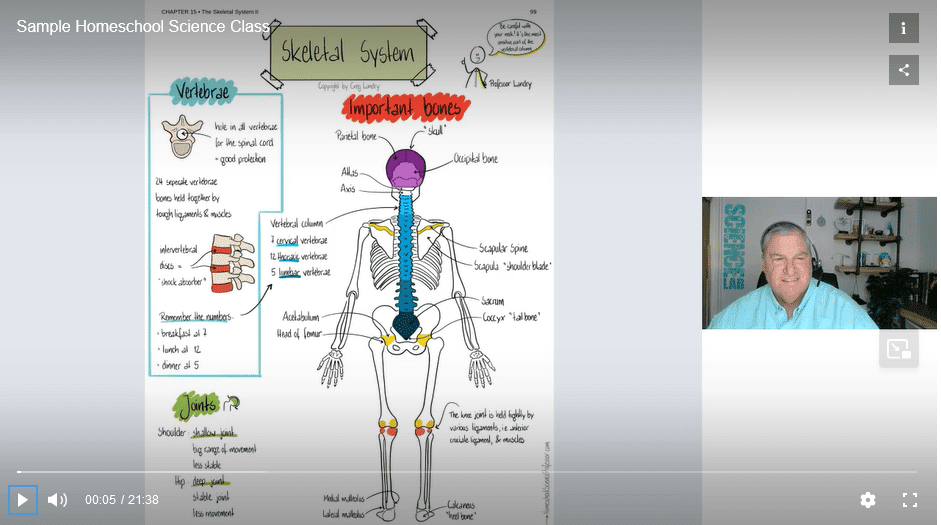 CHAPTER 15 • The Skeletal System II
99
Sample Homeschool Science Class
Be careful with
your neck! It's the most
sensitive part of the
vertebral column.
Skeletal System
Professor Landry
Copyright by Greg Landry
Vertebrae
hole in all vertebrae
for the spinal cord
= good protection
24 seperate vertebrae
bones held together by
tough ligaments & muscles
intervertebral
discs =
"shock absorber"
Remember the numbers:
• breakfast at 7
• lunch at 12
• dinner at 5
Important bones
Parietal bone
"skull"
Occipital bone
Atlas
Axis
Vertebral column
7 cervical vertebrae
12 thoracic vertebrae
5 lumbar vertebrae
Scapular Spine
Scapula "shoulder blade"
Sacrum
Coccyx "tail bone"
Acetabulum
Head of femur
Joints
Shoulder: shallow joint
big range of movement
less stable
Hip: deep joint
stable joint
less movement
The knee joint is held tightly by
various ligaments, i.e. anterior
cruciate ligament, & muscles
Medial malleolus
Lateral malleolus
Calcaneus
"heel bone"
HomeschoolScienceProfessor.com
SCIENCE
LAB
00:05 / 21:38